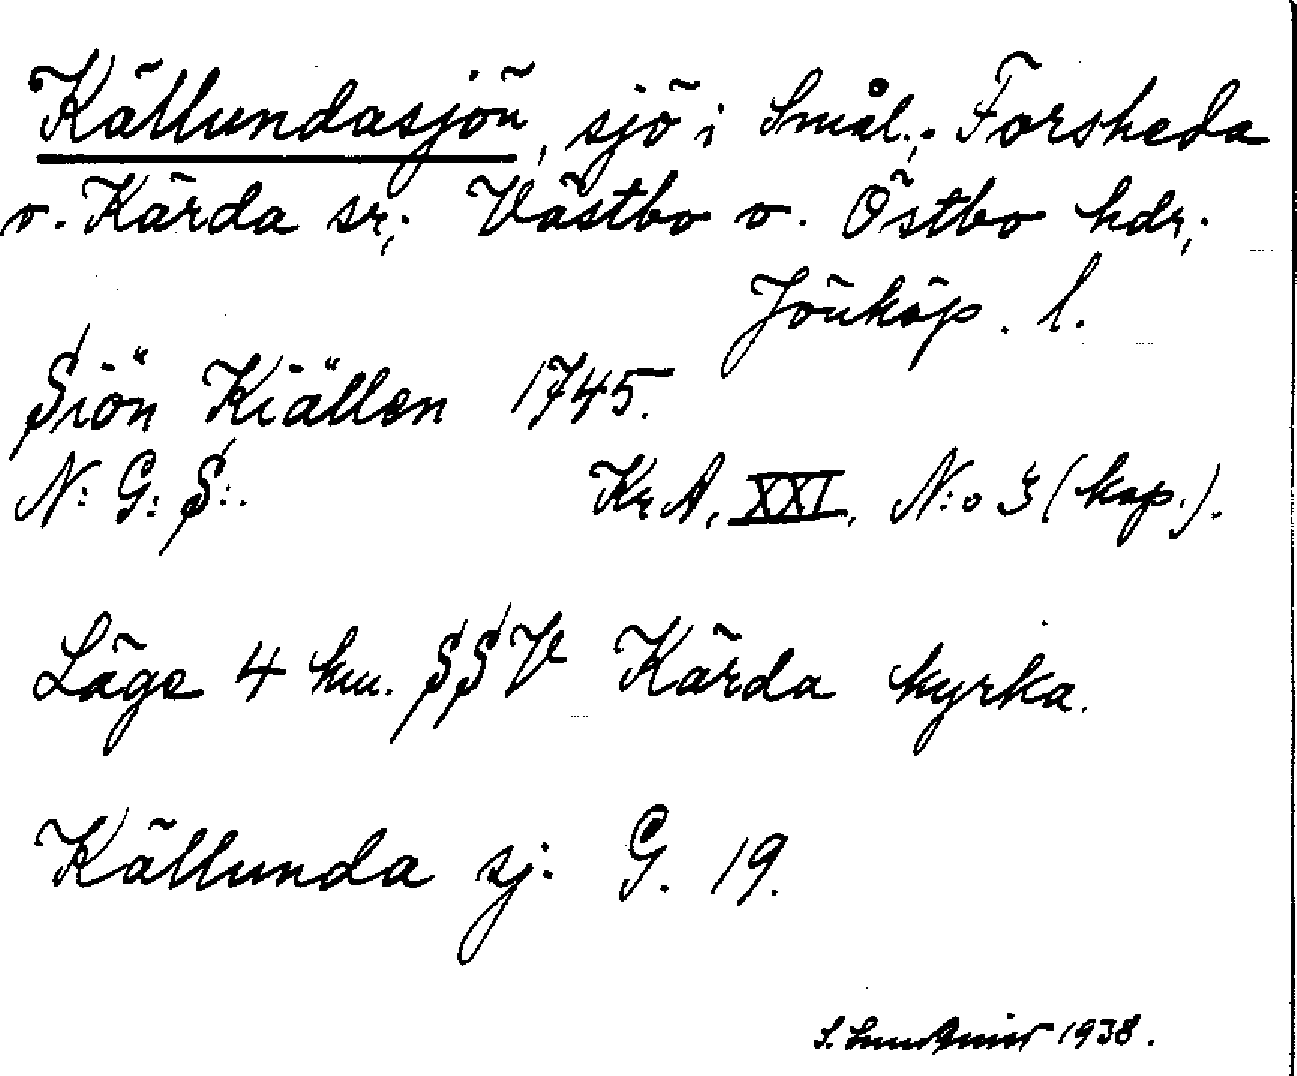 Källundasjön, sjö i Smål.; Forsheda
o. Kärda sr; Västbo o. Östbo hdr;
Jönköp. l.
Siön Kiällen 1745.
N: G: S:. Kr A, XXI, N:o 3 (kop.).
Läge 4 km. SSV Kärda kyrka.
Källunda sj. G. 19.
S. 1938.